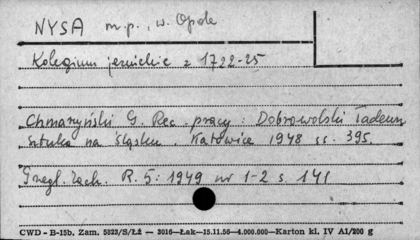 NYSA m.p., w. Opole
Kolegium jezuickie z 1722-25
Chmarzyński G. Rec. pracy: Dobrowolski Tadeusz
sztuka na Śląsku. Katowice 1948 ss. 395.
Przegl. Zach. R. 5: 1949 nr 1-2 s. 141
CWD - B-15b, Zam. 5823/S/Łż — 3016—Łak—15.11.56—4.000.000—Karton kl. IV A1/200 g